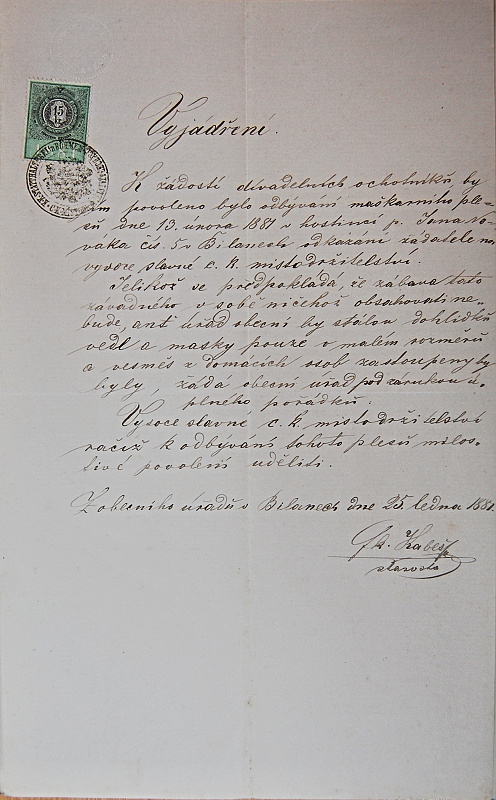 15
Vyjádření.
K žádosti divadelních ochotníků, by
jim povoleno bylo odbývání maškarního ple-
sů dne 13. února 1881 v hostinci p. Jana No-
váka čís. 5 v Bilanech odkazáni žadatelé na
vysoce slavné c. k. místodržitelství.
Jelikož se předpokládá, že zábava tato
závadného v sobě ničehož obsahovati ne-
bude, anť úřad obecní by stálou dohlídků
vedl a masky pouze v malém rozměrů
a vesměs z domácích osob zastoupeny by
byly, žádá obecní úřad pod zárukou ú-
plného pořádků.
Vysoce slavné c. k. místodržitelství
račiž k odbývání tohoto plesů milos-
tivé povolení uděliti.
Z obecního úřadů v Bilanech dne 25. ledna 1881
Kabeš
starosta